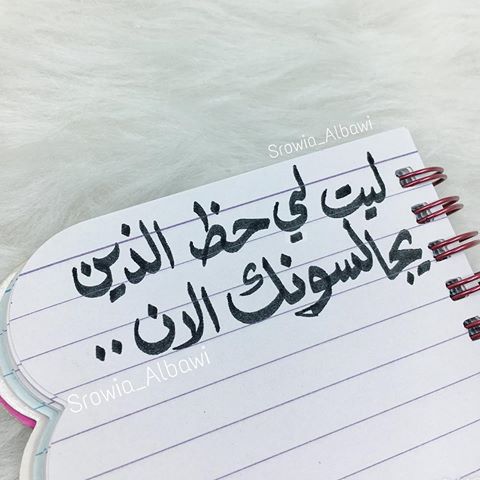 Srowia_Albawi
ليت لي حظ الذين
يجالسونك الان ..
Srowia_Albawi